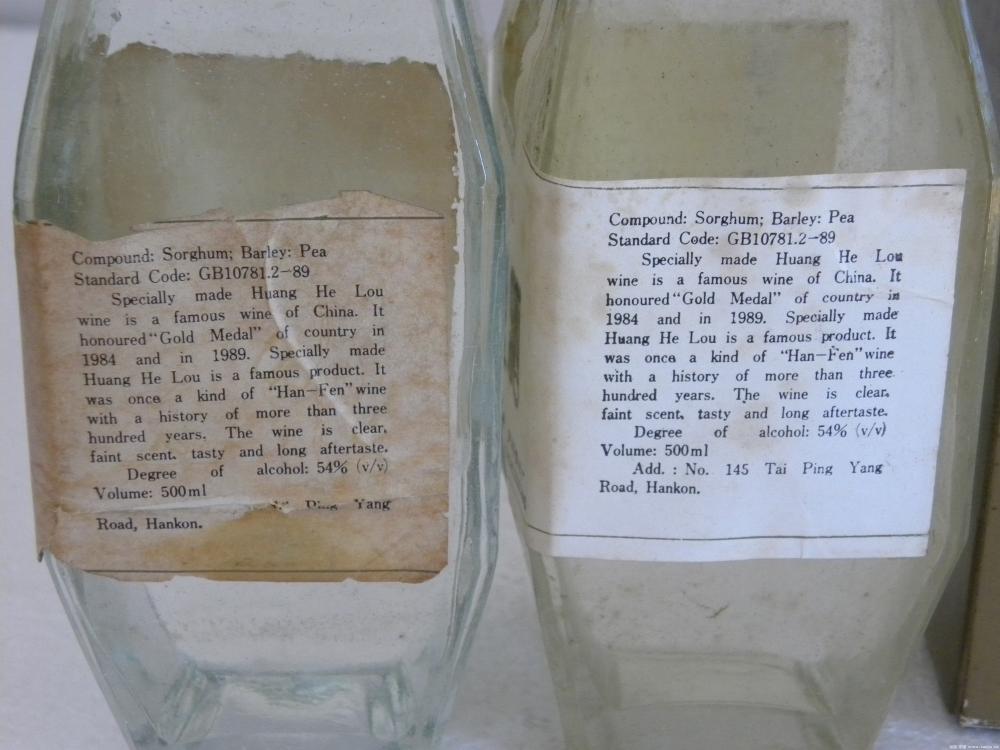 Compound: Sorghum; Barley: Pea
Standard Code: GB10781.2-89
Specially made Huang He Lou
wine is a famous wine of China. It
honoured "Gold Medal" of country in
1984 and in 1989. Specially made
Huang He Lou is a famous product. It
was once a kind of "Han-Fen" wine
with a history of more than three
hundred years. The wine is clear,
faint scent, tasty and long aftertaste.
Degree of alcohol: 54% (v/v)
Volume: 500ml
Ping Yang
Road, Hankon.
Compound: Sorghum; Barley: Pea
Standard Code: GB10781.2-89
Specially made Huang He Lou
wine is a famous wine of China. It
honoured "Gold Medal" of country in
1984 and in 1989. Specially made
Huang He Lou is a famous product. It
was once a kind of "Han-Fen" wine
with a history of more than three
hundred years. The wine is clear,
faint scent, tasty and long aftertaste.
Degree of alcohol: 54% (v/v)
Volume: 500ml
Add. : No. 145 Tai Ping Yang
Road, Hankon.